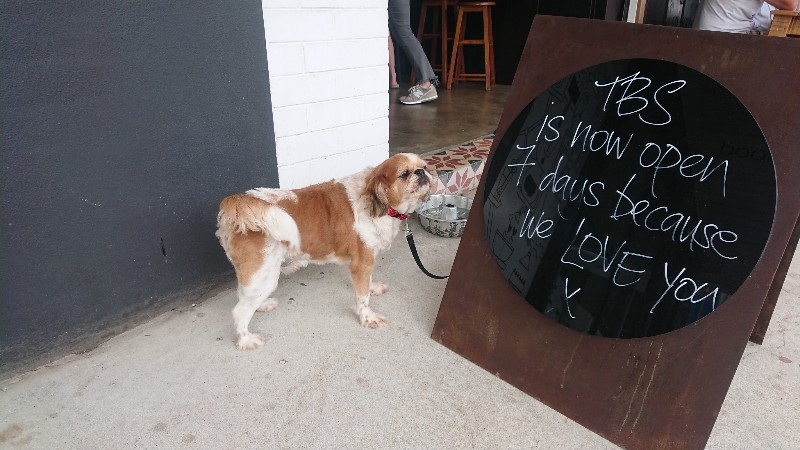 TBS
is now open
7 days because
we LOVE You
x